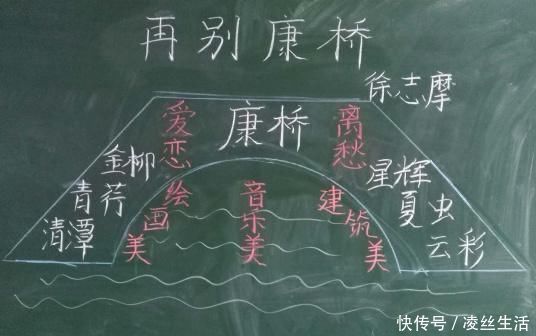 再别康桥
徐志摩
康桥
爱恋
离愁
金柳
青荇
清潭
星辉
夏虫
云彩
绘画美
音乐美
建筑美
快传号/凌丝生活